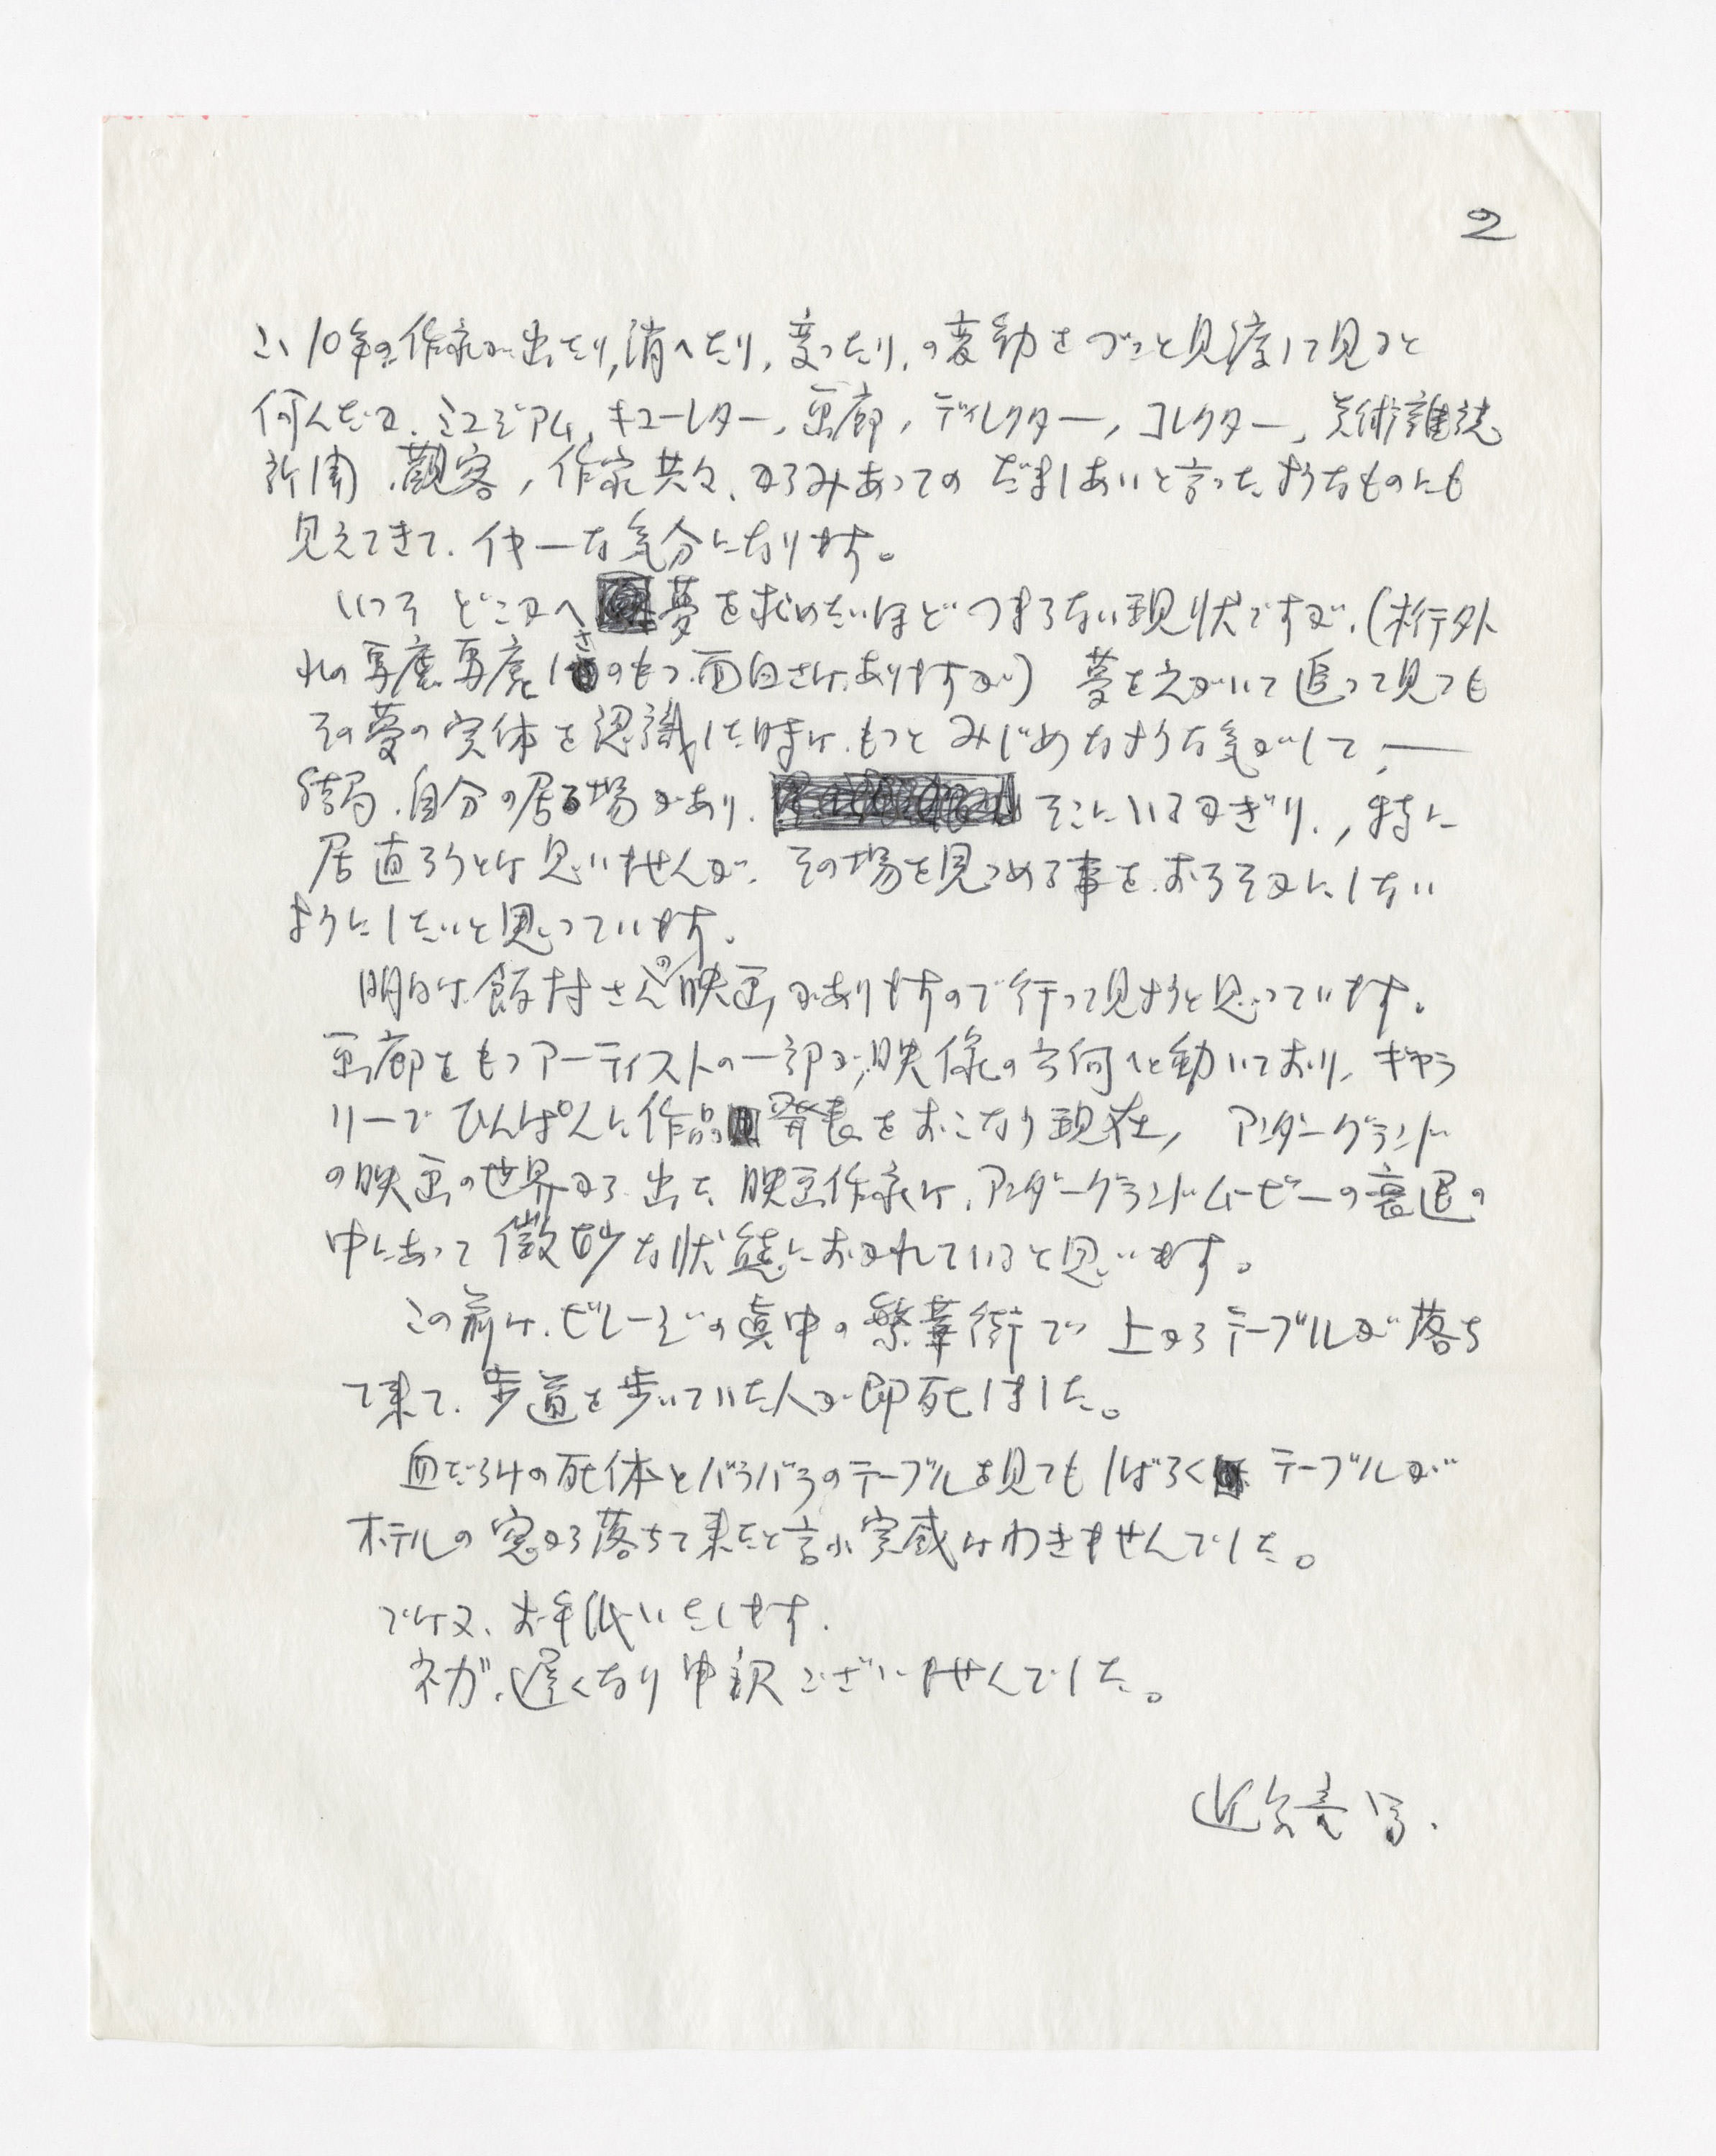 2
こゝ10年の作家が出たり,消へたり,変ったり,の変動をずっと見渡して見ると
何んだか、ミュジアム、キューレター、画廊,ディレクター,コレクター、美術雑誌
新聞、観客,作家共々、からみあっての だましあいと言ったようなものにも
見えてきて、イヤーな気分になります。
いっそ どこかへ 夢を求めたいほど つまらない現状ですが、(桁外
れの馬鹿馬鹿しさのもつ面白さは、ありますが) 夢をえがいて追って見ても
その夢の実体を認識した時は、もっと みじめなような気がして、——
結局、自分の居る場があり、 そこにいるかぎり、,特に
居直ろうとは思いませんが、その場を見つめる事を、おろそかにしない
ようにしたいと思っています。
明日は、飯村さんの映画がありますので行って見ようと思っています。
画廊をもつアーティストの一部が,映像の方向へと動いており、ギャラ
リーで ひんぱんに作品発表をおこなう現在, アンダーグランド
の映画の世界から出た 映画作家は、アンダーグランドムービーの衰退の
中にあって 微妙な状態におかれていると思います。
この前は、ビレージの真中の繁華街で 上からテーブルが落ち
て来て、歩道を歩いていた人が即死しました。
血だらけの死体とバラバラのテーブルを見てもしばらく テーブルが
ホテルの窓から落ちて来たと言ふ実感はわきませんでした。
では又、お手紙いたします.
ネガ、遅くなり申訳ございませんでした。